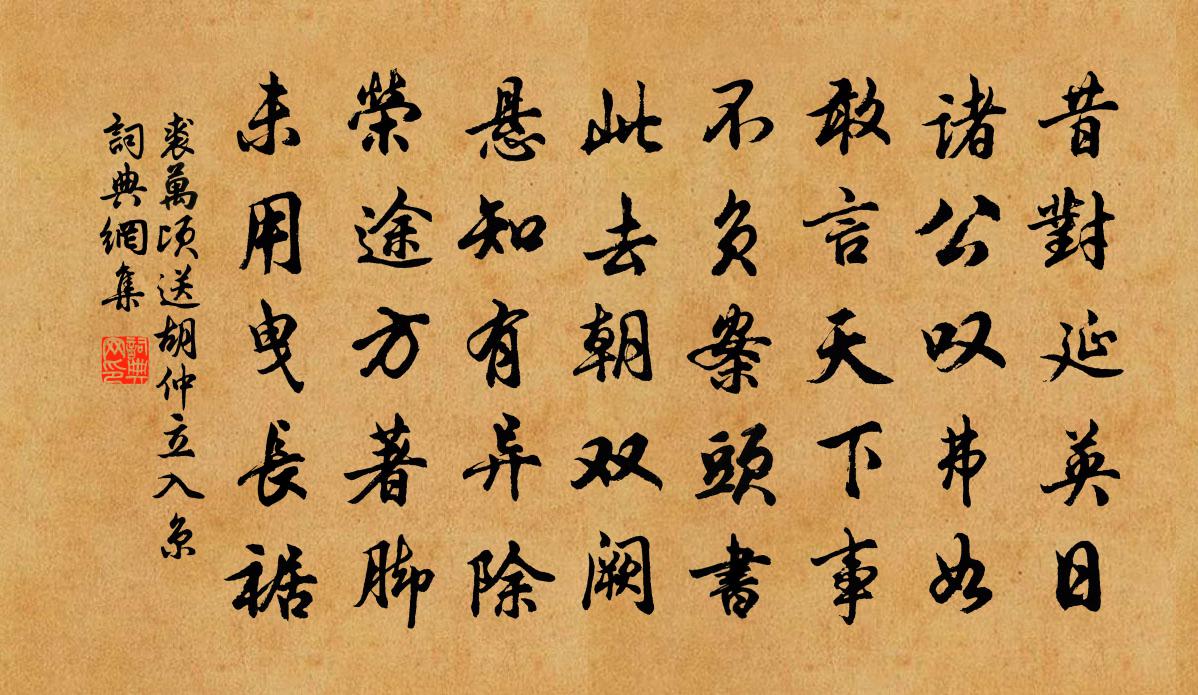 昔對延英日
諸公叹弗如
敢言天下事
不负案頭書
此去朝双阙
悬知有异除
榮途方著脚
未用曳長裾
裘萬頃送胡仲立入京
詞典網集
詞典网印